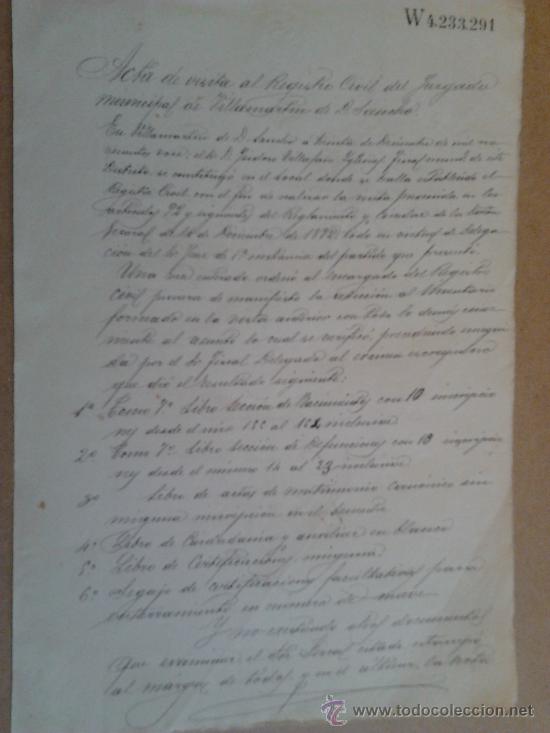 W 4.233.291
Acta de visita al Registro Civil del Juzgado
municipal de Villamartin de D. Sancho.
En Villamartin de D. Sancho á treinta de Diciembre de mil no-
vecientos once; el Sr. D. Isidoro Villafañe Iglesias fiscal mun.l de este
Distrito se constituyó en el local donde se halla establecido el
Registro Civil con el fin de realizar la visita prevenida en los
artículos 92 y siguientes del Reglamento y Circular de la
de Diciembre de 1872, todo en virtud de delega-
ción del Sr. Juez de 1ª instancia del partido que presentó.
Una vez ordenó al encargado del Registro
civil pusiera de manifiesto la adición al Inventario
formado en la visita anterior con todo lo demás
al asunto lo cual se verificó, procediendo
da por el Sr. Fiscal Delegado al examen
que dió el resultado siguiente:
1º Tomo 7º Libro sección de Nacimientos con 10 inscripcio
nes desde el inclusive
2º Tomo 7º Libro sección de Defunciones con 10 inscripcio
nes desde el número 14 al 23 inclusive
3º Libro de actas de matrimonio canonico sin
ninguna inscripción en el
4º Libro de Ciudadania y auxiliar en blanco
5º Libro de Certificaciones ninguna
6º Legajo de certificaciones facultativas para
enterramiento en número de nueve.
Y no habiendo otros documentos
que examinar el Sr. Fiscal citado
al margen de todos y en el la nota
www.todocoleccion.net